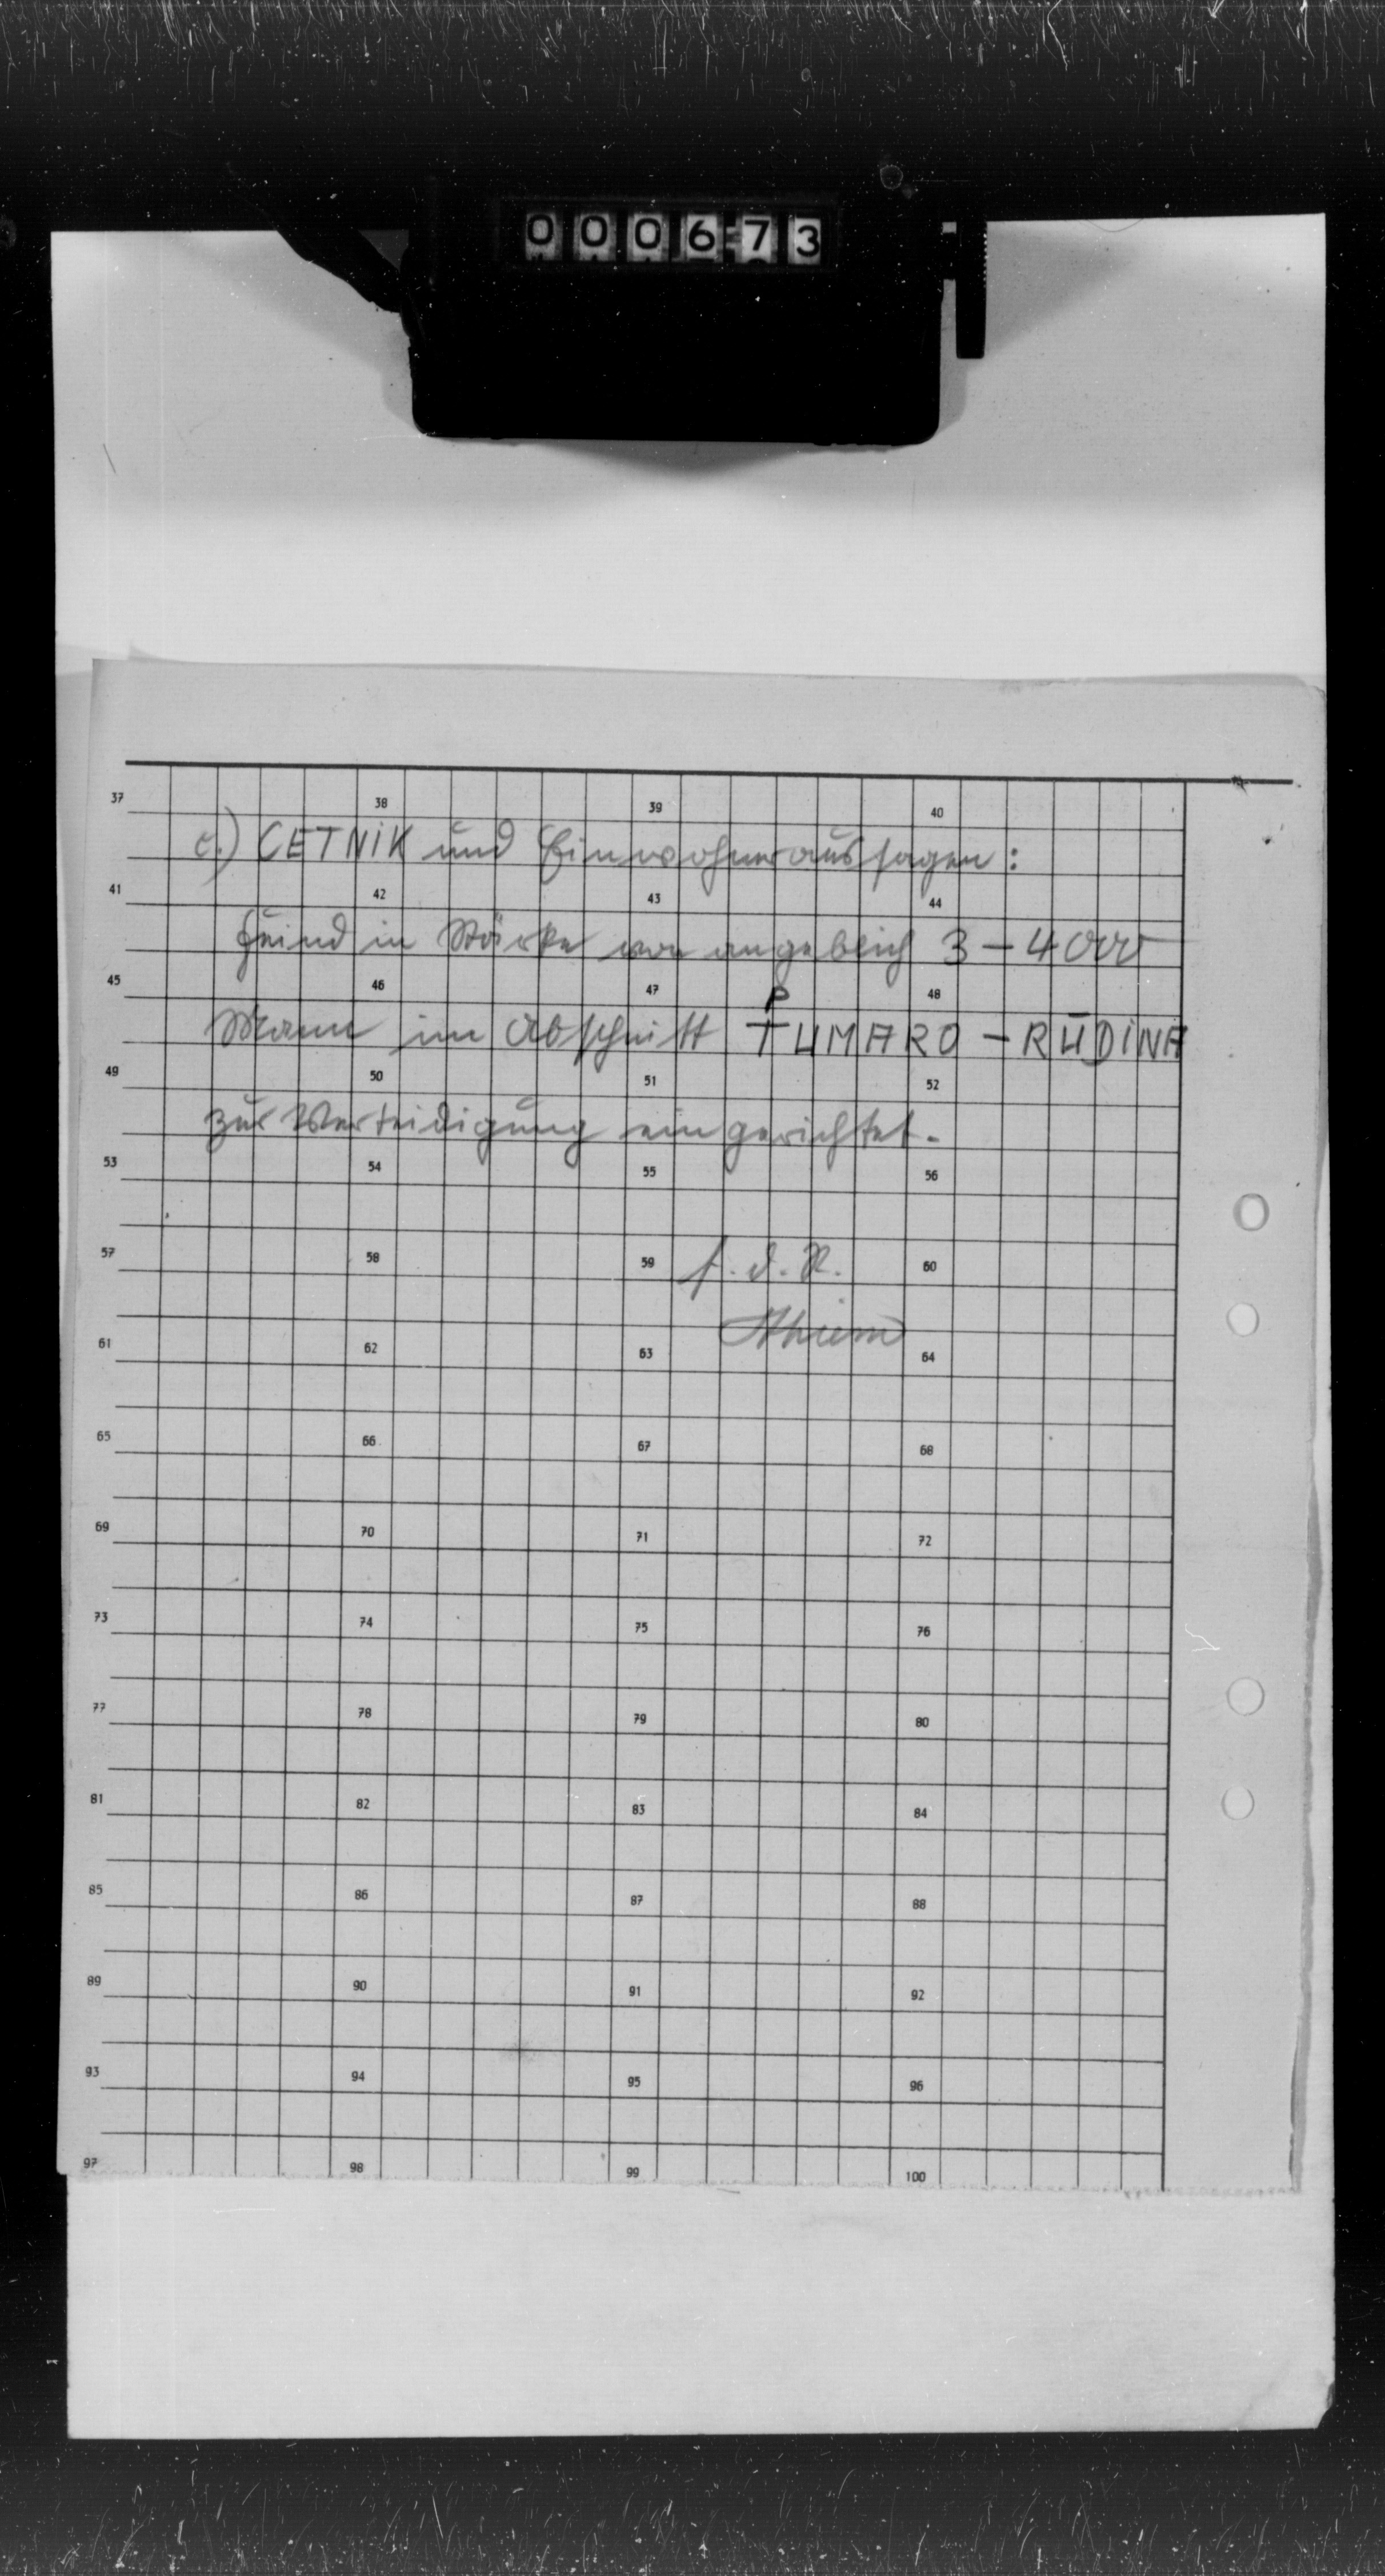 000673
37 38 39 40
c.) CETNIK und Einwohneraussagen:
41 42 43 44
Feind in Stärke von angeblich 3-4000
45 46 47 48
P
Mann im Abschnitt TUMARO-RŪDINA
49 50 51 52
zur Verteidigung eingerichtet.
53 54 55 56
f.d.R.
57 58 59 60
61 62 63 64
65 66 67 68
69 70 71 72
73 74 75 76
77 78 79 80
81 82 83 84
85 86 87 88
89 90 91 92
93 94 95 96
97 98 99 100